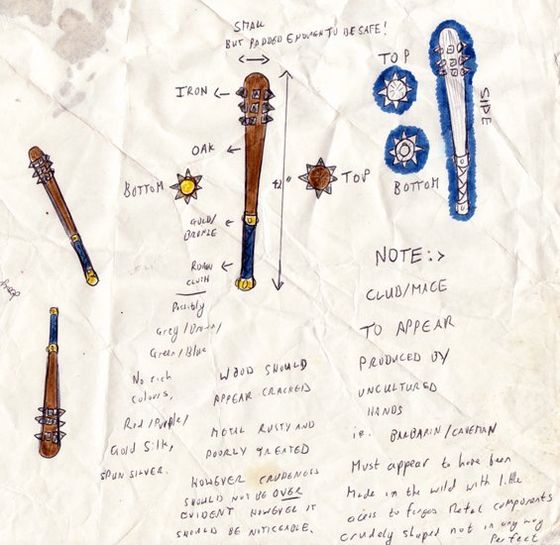 SMALL
BUT PADDED ENOUGH TO BE SAFE!
IRON
OAK
BOTTOM
TOP
GOLD/
BRONZE
ROUGH
CLOTH
Possibly
Grey/Brown/
Green/Blue
No rich
colours,
Red/Purple/
Gold Silk,
SPUN SILVER.
WOOD SHOULD
APPEAR CRACKED
METAL RUSTY AND
POORLY TREATED
HOWEVER CRUDENESS
SHOULD NOT BE OVER
EVIDENT HOWEVER IT
SHOULD BE NOTICEABLE.
TOP
BOTTOM
SIDE
NOTE:>
CLUB/MACE
TO APPEAR
PRODUCED BY
UNCULTURED
HANDS
ie. BARBARIN/CAVEMAN
Must appear to have been
Made in the wild with little
acess to forges Metal components
crudely shaped not in any way
Perfect